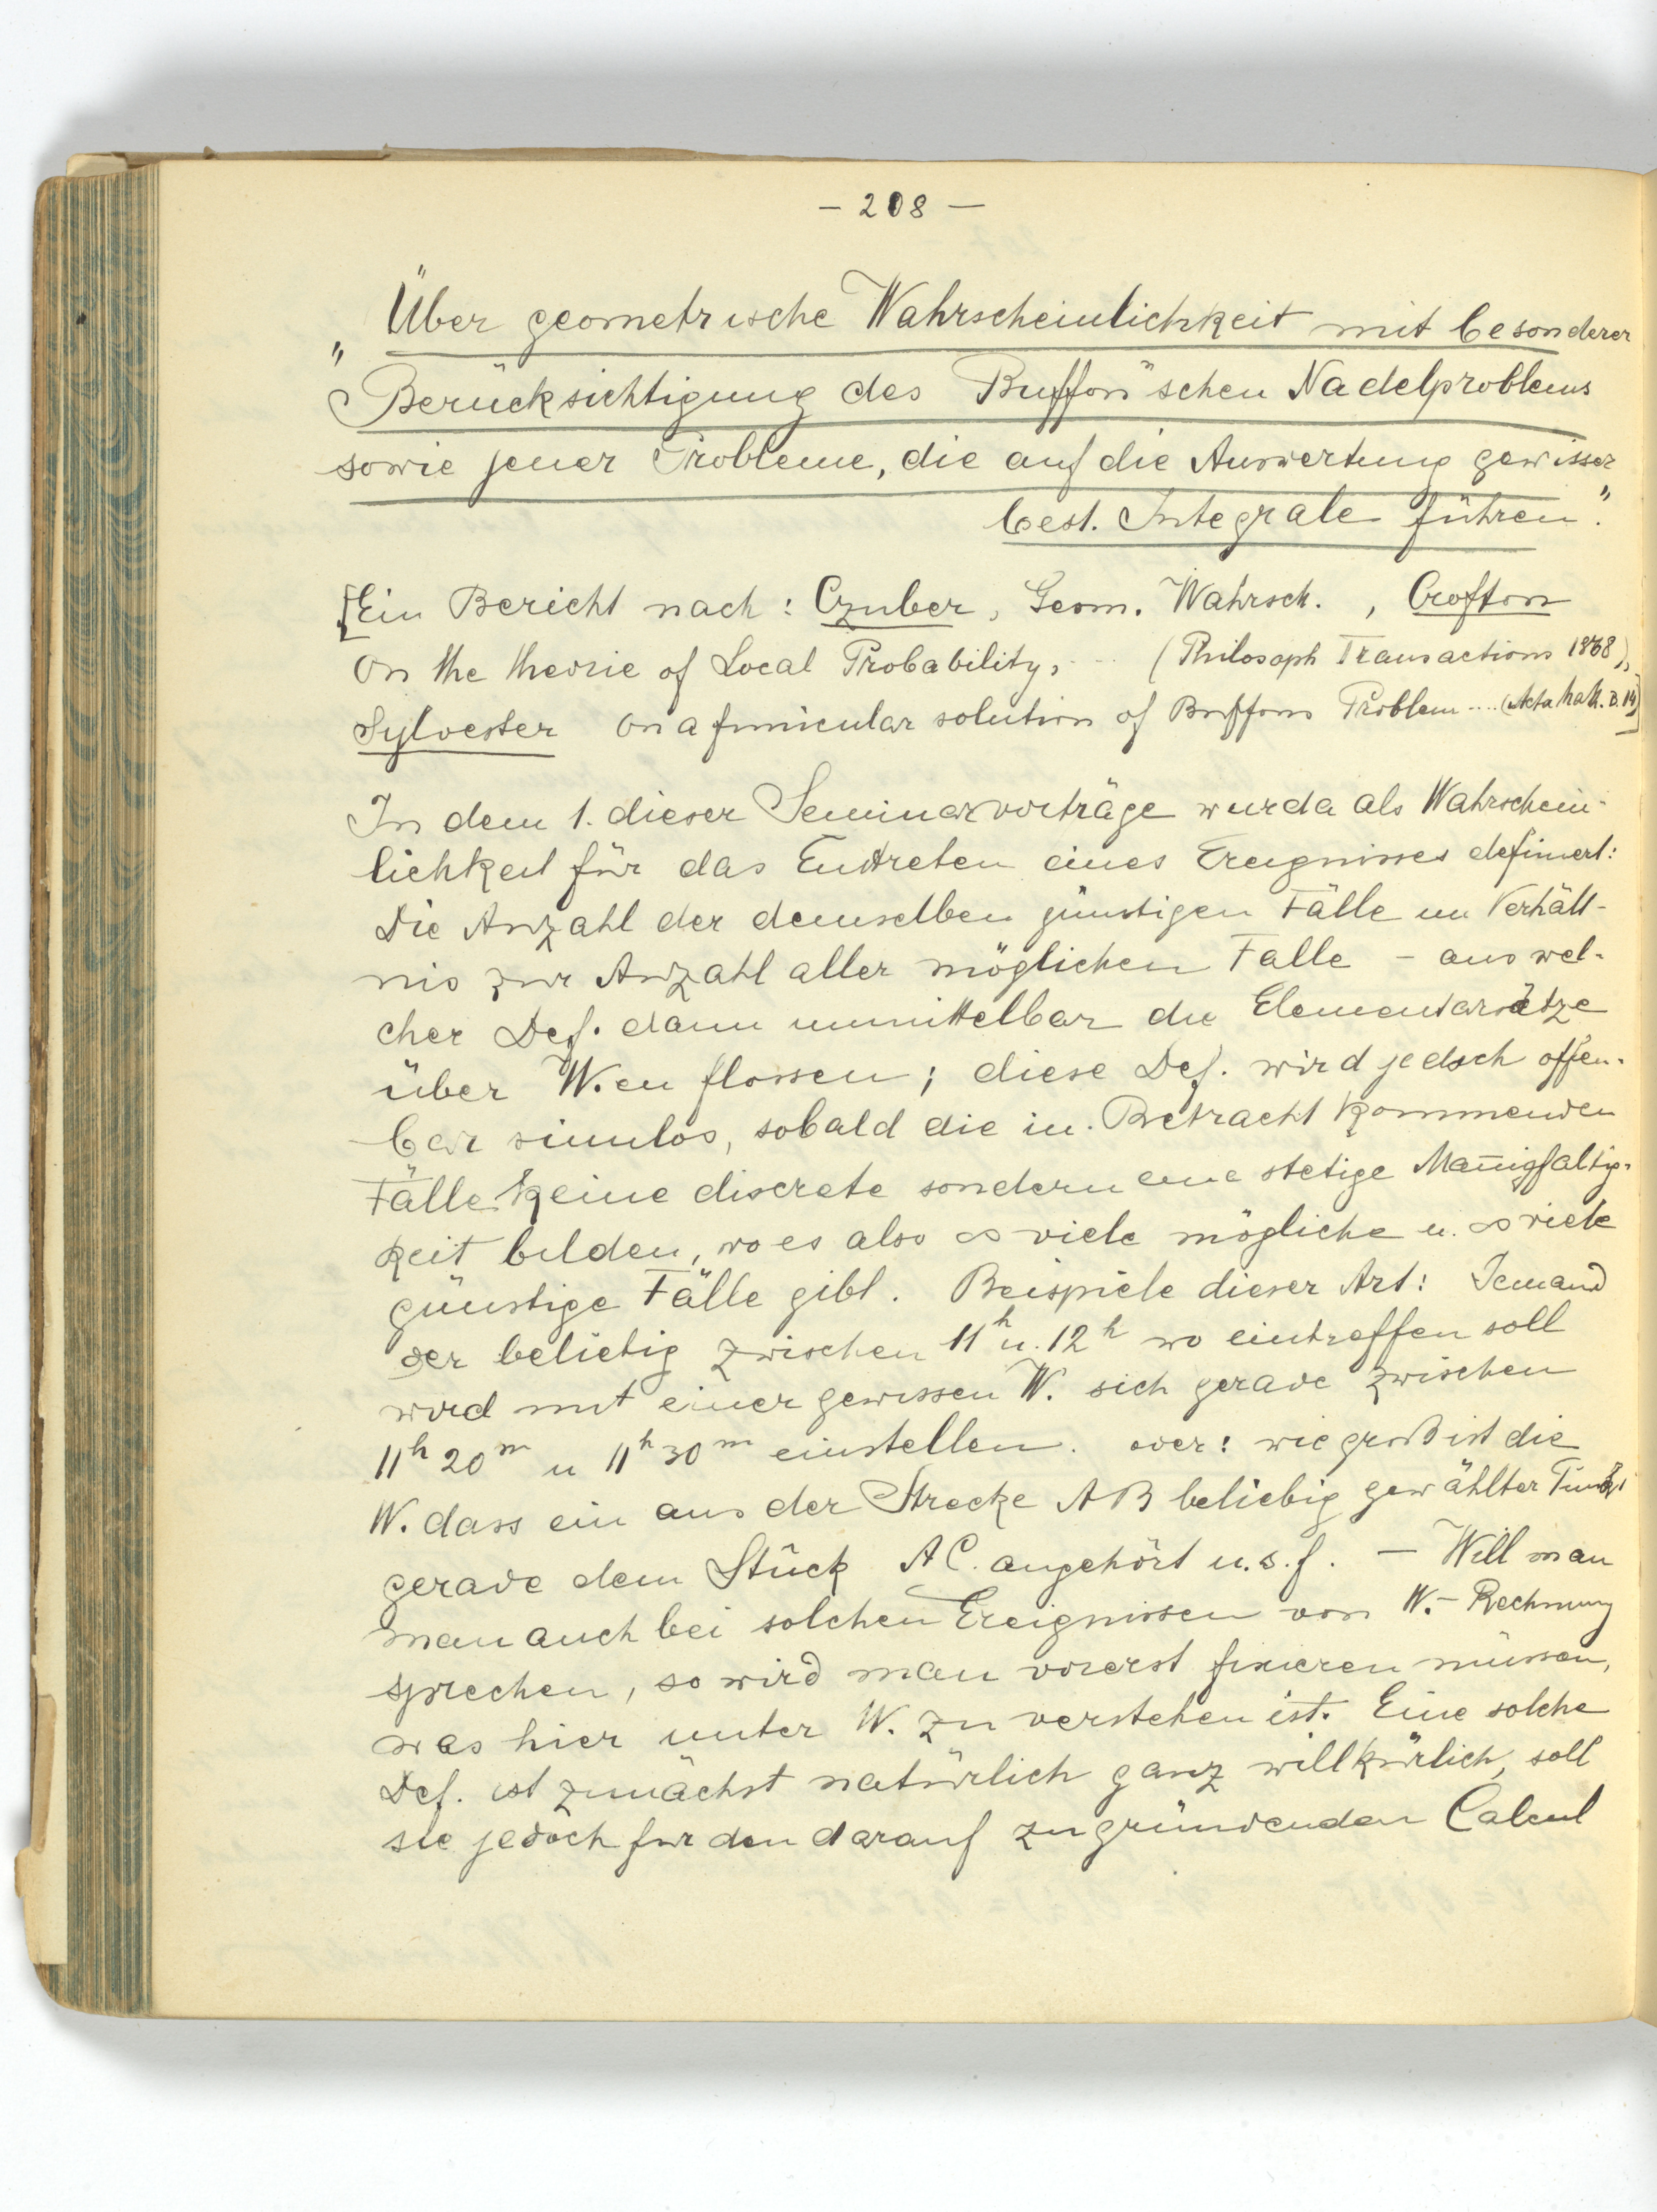 – 208 –
„Über geometrische Wahrscheinlichkeit mit besonderer
Berücksichtigung des Buffon'schen Nadelproblems
sowie jener Probleme, die auf die Auswertung gewisser
best. Integrale führen".
[Ein Bericht nach: Czuber, Geom. Wahrsch. , Crofton
On the theorie of Local Probability, ... (Philosoph Transactions 1868),
Sylvester On a funicular solution of Buffons Problem .... (Acta Math. B. 14)]
In dem 1. dieser Seminarvorträge wurda als Wahrschein-
lichkeit für das Eintreten eines Ereignisses definiert:
Die Anzahl der demselben günstigen Fälle im Verhält-
nis zur Anzahl aller möglichen Falle – aus wel-
cher Def. dann unmittelbar die Elementarsätze
über W.en flossen; diese Def. wird jedoch offen-
bar sinnlos, sobald die in Betracht kommenden
Fälle keine discrete sondern eine stetige Man̅igfaltig-
keit bilden, wo es also ∞ viele mögliche u. ∞ viele
günstige Fälle gibt. Beispiele dieser Art: Jemand
der beliebig zwischen 11ʰ u. 12ʰ wo eintreffen soll
wird mit einer gewissen W. sich gerade zwischen
11ʰ 20ᵐ u 11ʰ 30ᵐ einstellen. oder: wie groß ist die
W. dass ein aus der Strecke AB beliebig gewählter Punkt
gerade dem Stück AC. angehört u.s.f. – Will man
man auch bei solchen Ereignissen von W.-Rechnung
sprechen, so wird man vorerst fixieren müssen,
was hier unter W. zu verstehen ist. Eine solche
Def. ist zunächst natürlich ganz willkürlich, soll
sie jedoch für den darauf zu gründenden Calcul